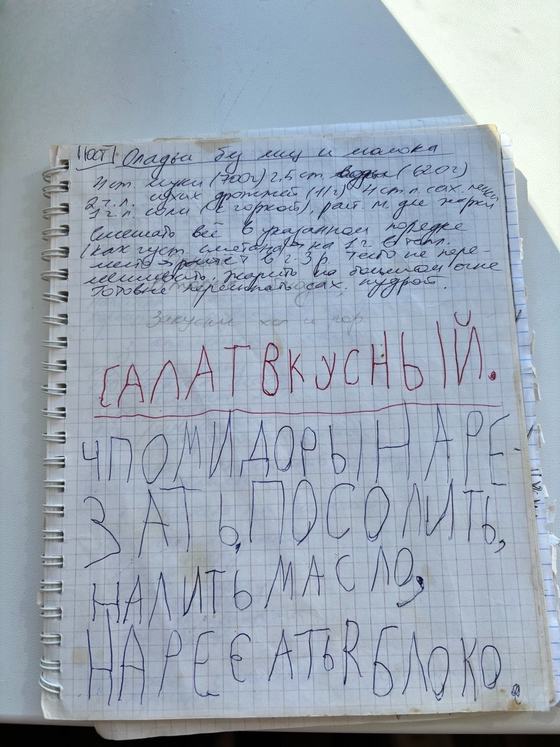 ПОСТ Оладьи без яиц и молока
4 ст. муки (700г) 2,5 ст. воды (620г)
2 ч.л. сухих дрожжей (11г) 4 ст.л. сах. песка
1 ч.л. соли (с горкой), раст. м. для жарки
Смешать всё в указанном порядке
(как густ. сметана) на 1 ч в тепл.
место в 2-3 р. Тесто не пере-
мешивать. Жарить на большом огне
Готовые пересыпать сах. пудрой.
Закуски хол и гор
САЛАТ ВКУСНЫЙ.
4 ПОМИДОРЫ НАРЕ-
ЗАТЬ, ПОСОЛИТЬ,
НАЛИТЬ МАСЛО,
НАРЕЄАТЬ ЯБЛОКО.